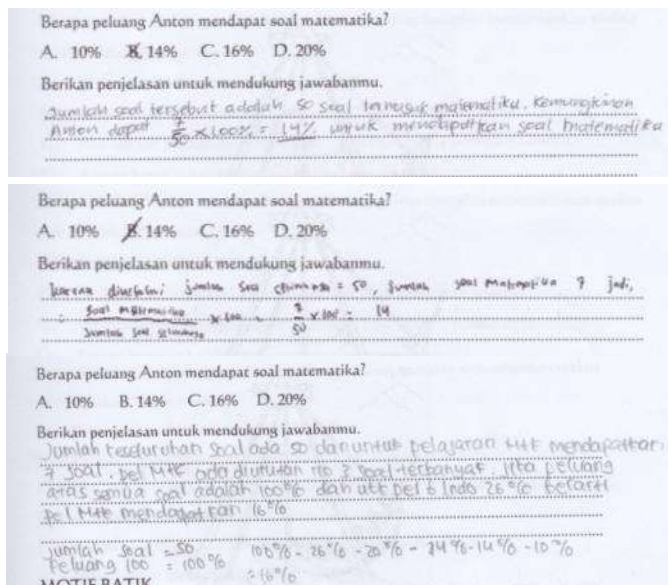 Berapa peluang Anton mendapat soal matematika?
A. 10% B. 14% C. 16% D. 20%
Berikan penjelasan untuk mendukung jawabanmu.
Jumlah soal tersebut adalah 50 soal termasuk matematika. Kemungkinan
Anton dapat 7/50 x 100% = 14% untuk mendapatkan soal matematika
Berapa peluang Anton mendapat soal matematika?
A. 10% B. 14% C. 16% D. 20%
Berikan penjelasan untuk mendukung jawabanmu.
karena diketahui jumlah soal = 50, jumlah soal matematika 7 jadi,
= soal matematika / jumlah soal seluruhnya x 100 = 7/50 x 100 = 14
Berapa peluang Anton mendapat soal matematika?
A. 10% B. 14% C. 16% D. 20%
Berikan penjelasan untuk mendukung jawabanmu.
Jumlah keseluruhan soal ada 50 dan untuk pelajaran MTK mendapatkan
7 soal. pel MTK ada diurutan no 3 soal terbanyak, jika peluang
atas semua soal adalah 100% dan utk pel b Indo 26% berarti
pel MTK mendapatkan 16%
jumlah soal = 50 100% - 26% - 20% - 14% - 14% - 10%
Peluang 100 = 100% = 16%
MOTIF BATIK